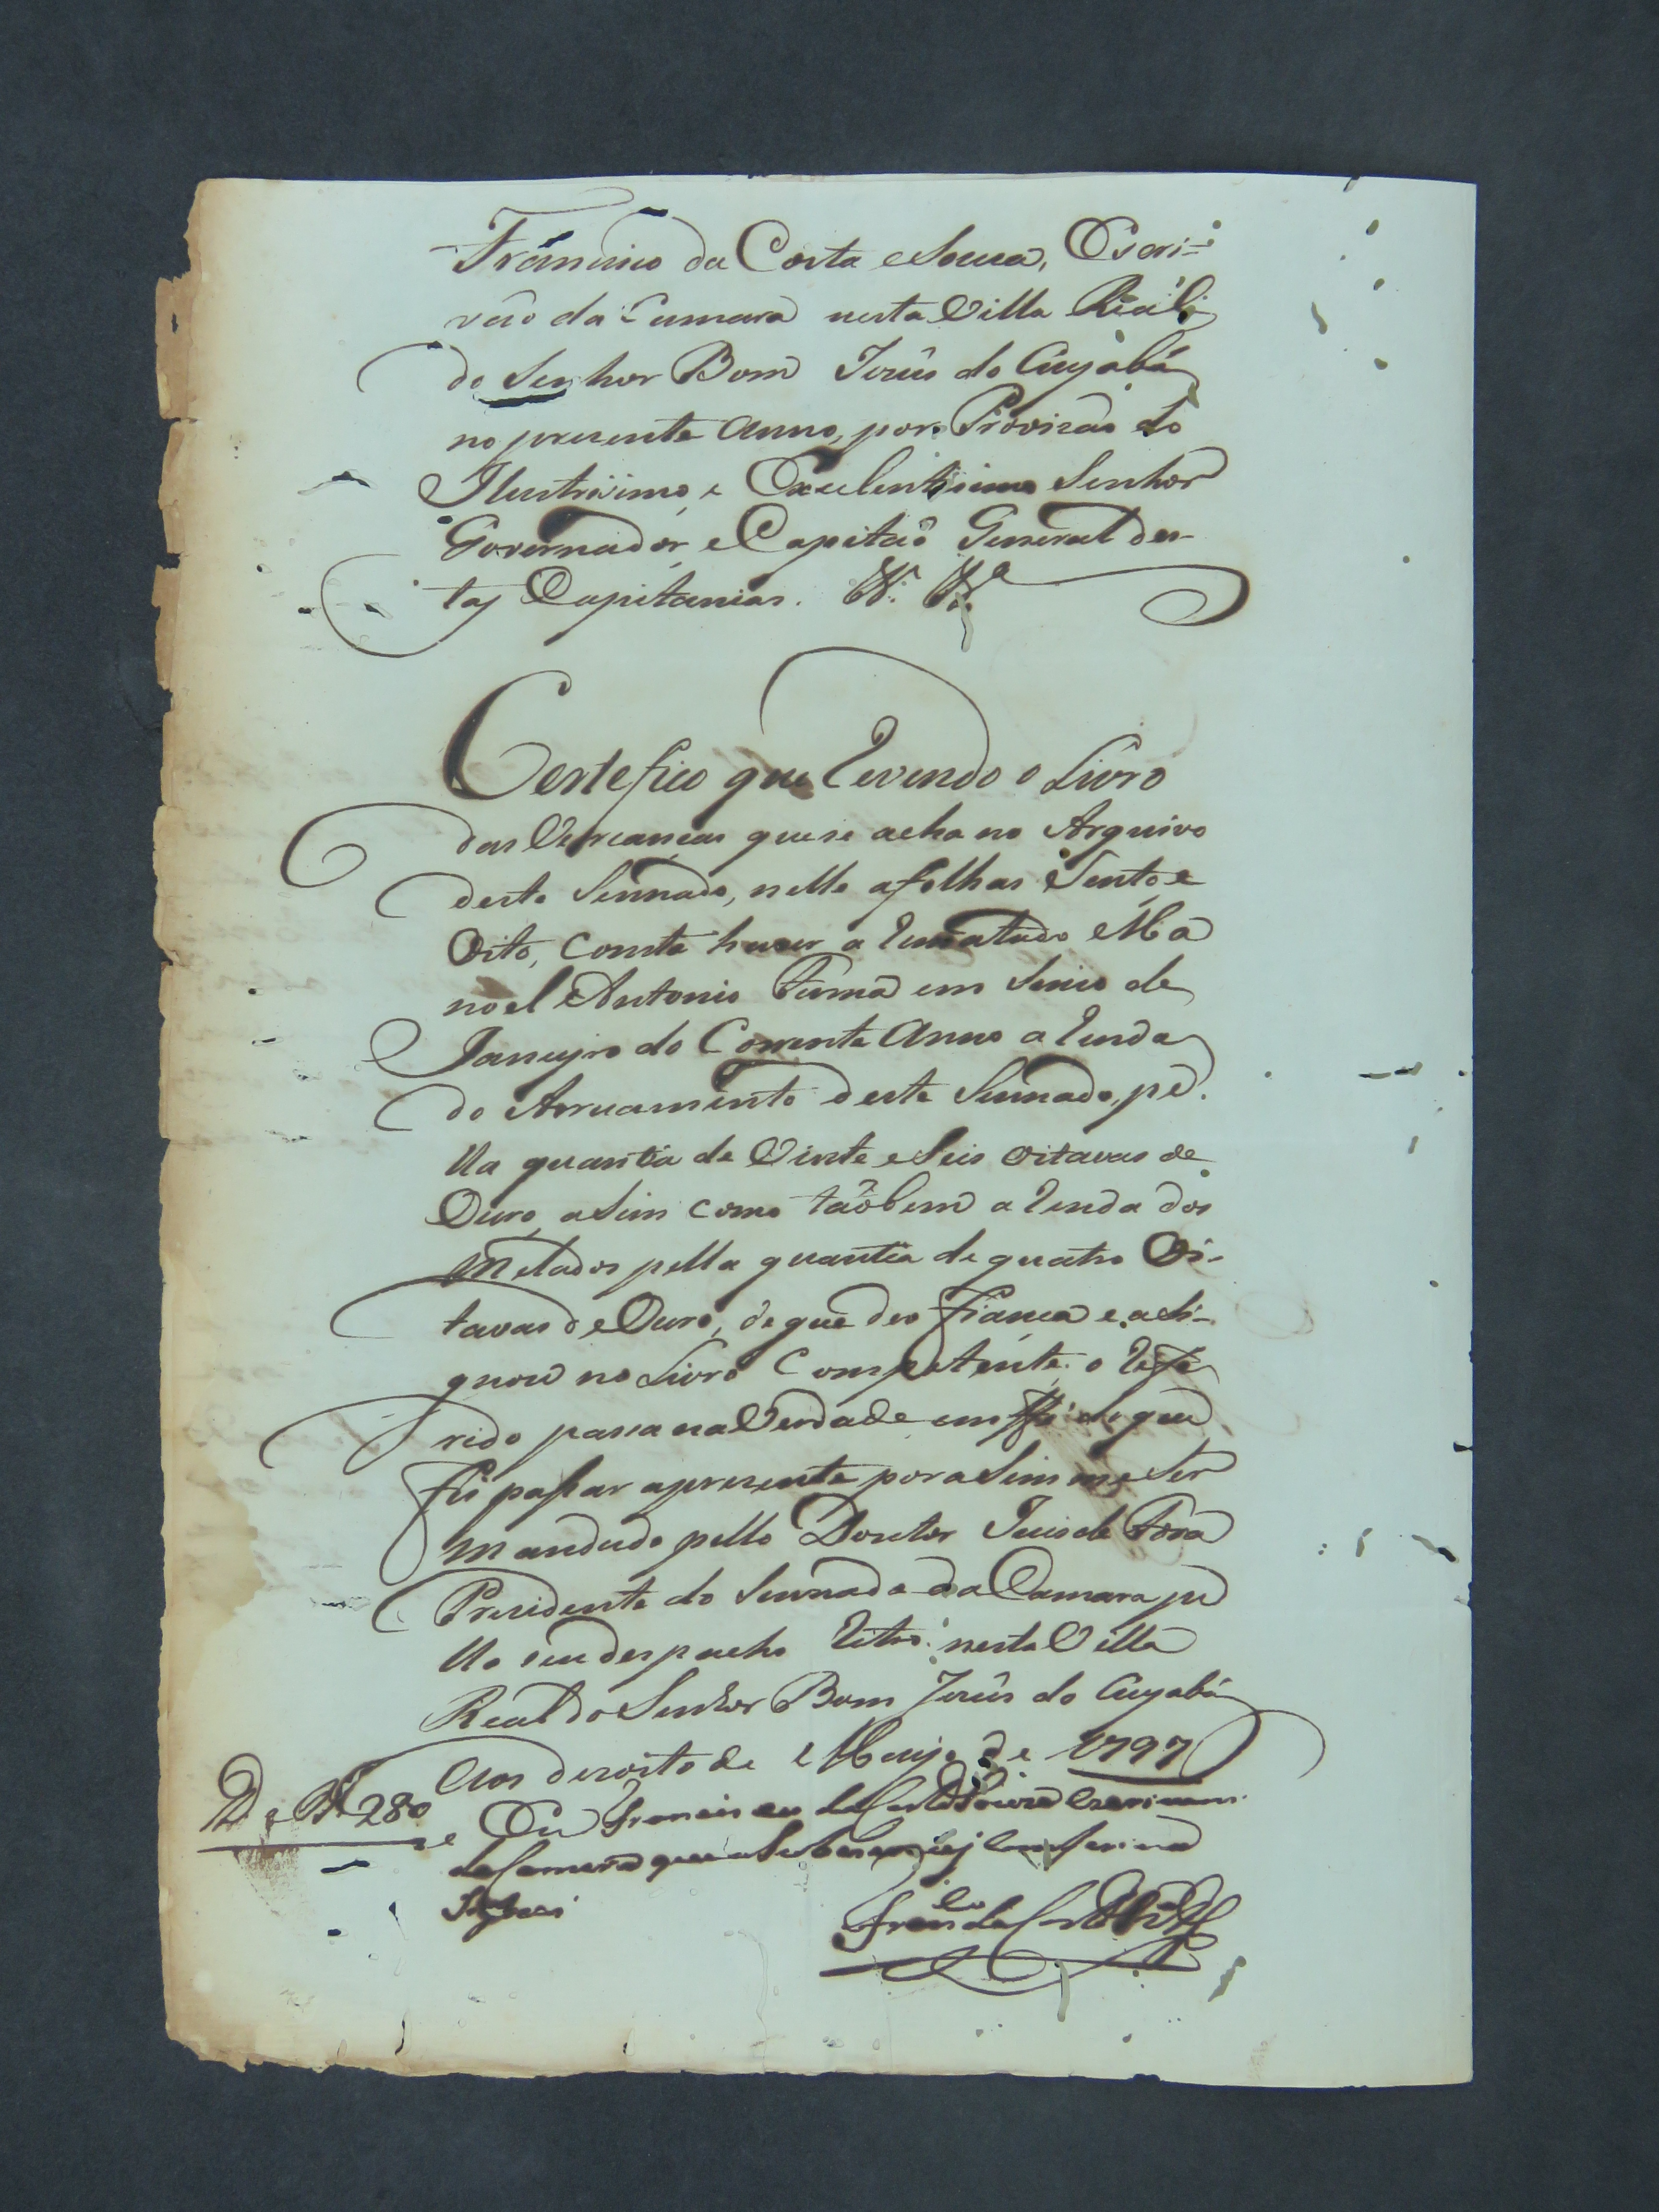 Francisco da Costa e Souza, Escri-
vão da Camara nesta Villa Real
do Senhor Bom Jezûs do Cuyabá
no prezente Anno, por Provizaõ do
Ilustrisimo, e Excelentisimo Senhor
Governador, e Capitaõ General des-
tas Capitanias. &.ª &.ª
Certefico que revendo o Livro
das Vereanças que se acha no Arquivo
deste Sennado, nelle a folhas Sento e
Oito, Consta haver a rematado Ma
noel Antonio em Sinco de
Janeyro do Corrente Anno a renda
do Arruamento deste Sennado, pe
lla quantia de Vinte e Seis oitavas de
Ouro, asim como taõbem a renda dos
Melados pella quantia de quatro Oi-
tavas de Ouro, de que deo fiança e asi-
gnou no Livro Competente: o refe
rido pasa na Verdade em fé do que
fis passar a prezente por asim me Ser
mandado pello Doutor Juis de Fora
Prezidente do Sennado da Camara pe
llo seu despacho retro: nesta Villa
Real do Senhor Bom Jezûs do Cuyabá
Aos dezoito de Mayo de 1797
D e R 280
e Eu Francisco da Costa e Souza Escrivam
da Camera que a Sobescrevy Conferi e
Asignei
Fran.co da Costa e Sz.ª